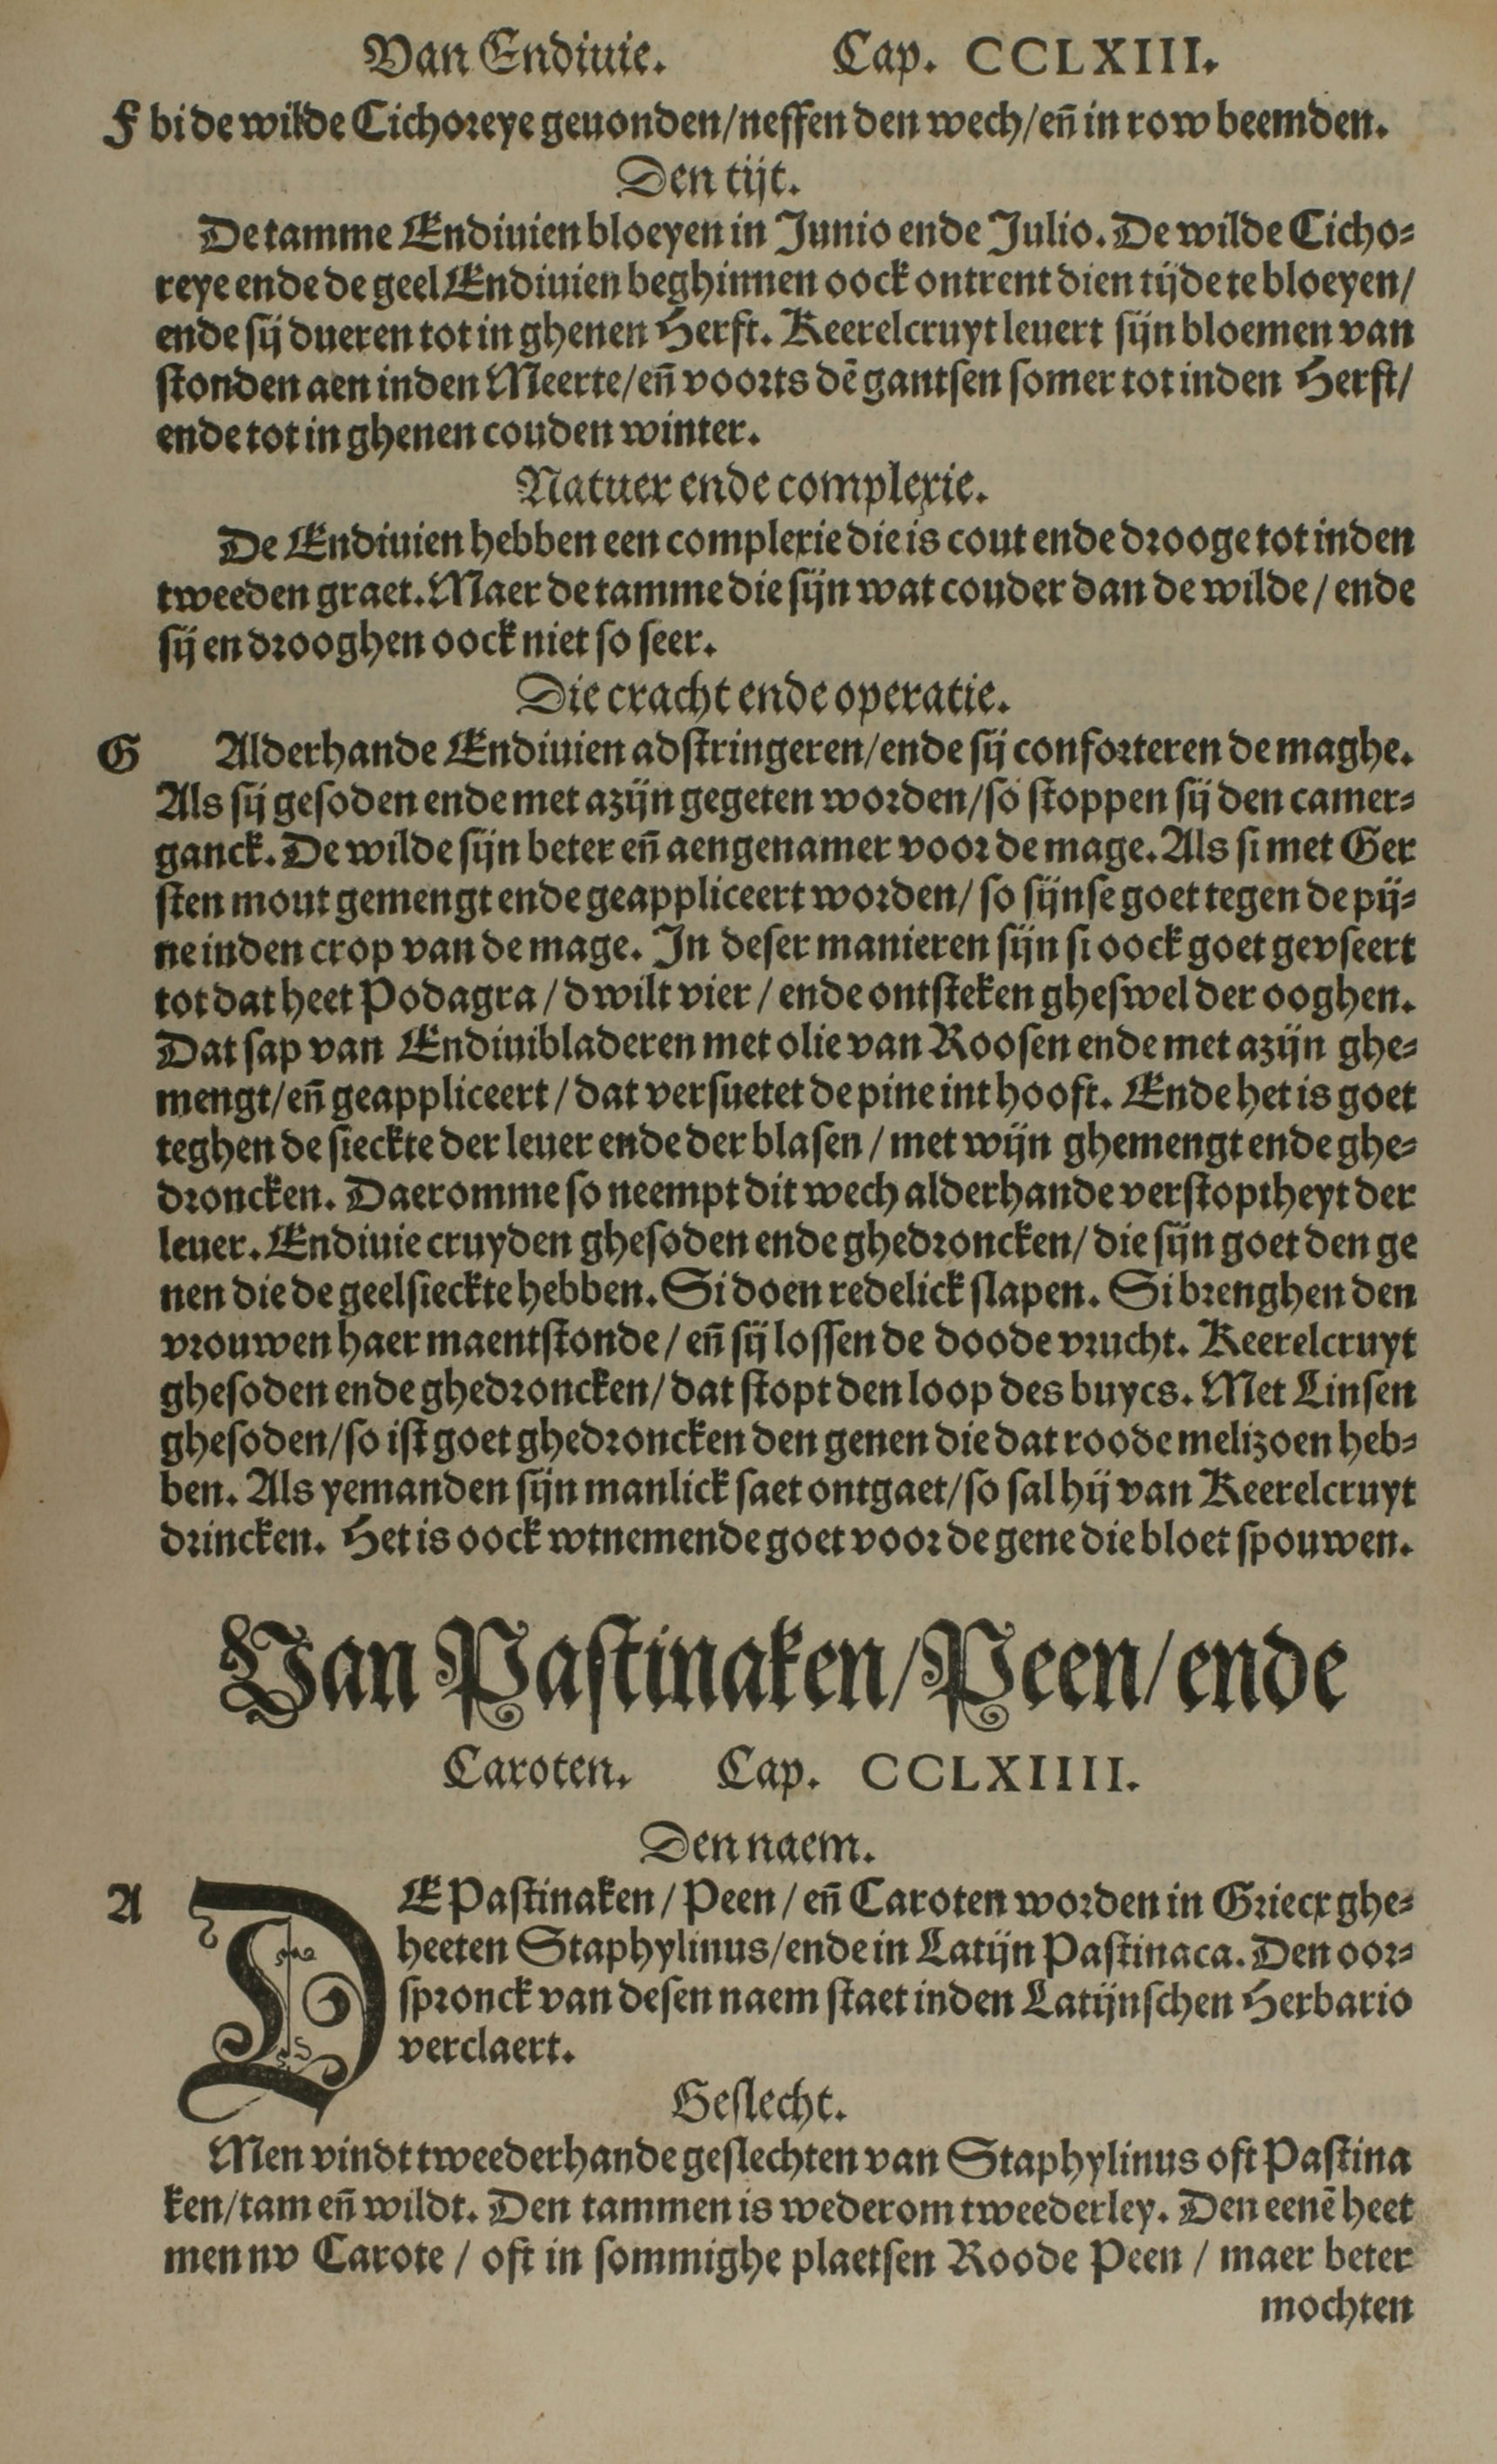 Van Endiuie. Cap. CCLXIII.
F bi de wilde Cichoreye geuonden/neffen den wech/en̄ in row beemden.
Den tijt.
De tamme Endiuien bloeyen in Junio ende Julio. De wilde Cicho=
reye ende de geel Endiuien beghinnen oock ontrent dien tijde te bloeyen/
ende sij dueren tot in ghenen Herfst. Keerelcruyt leuert sijn bloemen van
stonden aen inden Meerte/en̄ voorts dē gantsen somer tot inden Herfst/
ende tot in ghenen couden winter.
Natuer ende complexie.
De Endiuien hebben een complexie die is cout ende drooge tot inden
tweeden graet. Maer de tamme die sijn wat couder dan de wilde / ende
sij en drooghen oock niet so seer.
Die cracht ende operatie.
G Alderhande Endiuien adstringeren/ende sij conforteren de maghe.
Als sij gesoden ende met azijn gegeten worden/so stoppen sij den camer=
ganck. De wilde sijn beter en̄ aengenamer voor de mage. Als si met Ger
sten mout gemengt ende geappliceert worden/ so sijnse goet tegen de pij=
ne inden crop van de mage. In deser manieren sijn si oock goet gevseert
tot dat heet Podagra / dwilt vier / ende ontsteken gheswel der ooghen.
Dat sap van Endiuibladeren met olie van Roosen ende met azijn ghe=
mengt/en̄ geappliceert / dat versuetet de pine int hooft. Ende het is goet
teghen de sieckte der leuer ende der blasen / met wijn ghemengt ende ghe=
droncken. Daeromme so neempt dit wech alderhande verstoptheyt der
leuer. Endiuie cruyden ghesoden ende ghedroncken/ die sijn goet den ge
nen die de geelsieckte hebben. Si doen redelick slapen. Si brenghen den
vrouwen haer maentstonde / en̄ sij lossen de doode vrucht. Keerelcruyt
ghesoden ende ghedroncken/ dat stopt den loop des buycs. Met Linsen
ghesoden/so ist goet ghedroncken den genen die dat roode melizoen heb=
ben. Als yemanden sijn manlick saet ontgaet/so sal hij van Keerelcruyt
drincken. Het is oock wtnemende goet voor de gene die bloet spouwen.
Van Pastinaken/Peen/ende
Caroten. Cap. CCLXIIII.
Den naem.
A DE Pastinaken / Peen / en̄ Caroten worden in Griecx ghe=
heeten Staphylinus/ende in Latijn Pastinaca. Den oor=
spronck van desen naem staet inden Latijnschen Herbario
verclaert.
Geslecht.
Men vindt tweederhande geslechten van Staphylinus oft Pastina
ken/tam en̄ wildt. Den tammen is wederom tweederley. Den eenē heet
men nv Carote / oft in sommighe plaetsen Roode Peen / maer beter
mochten